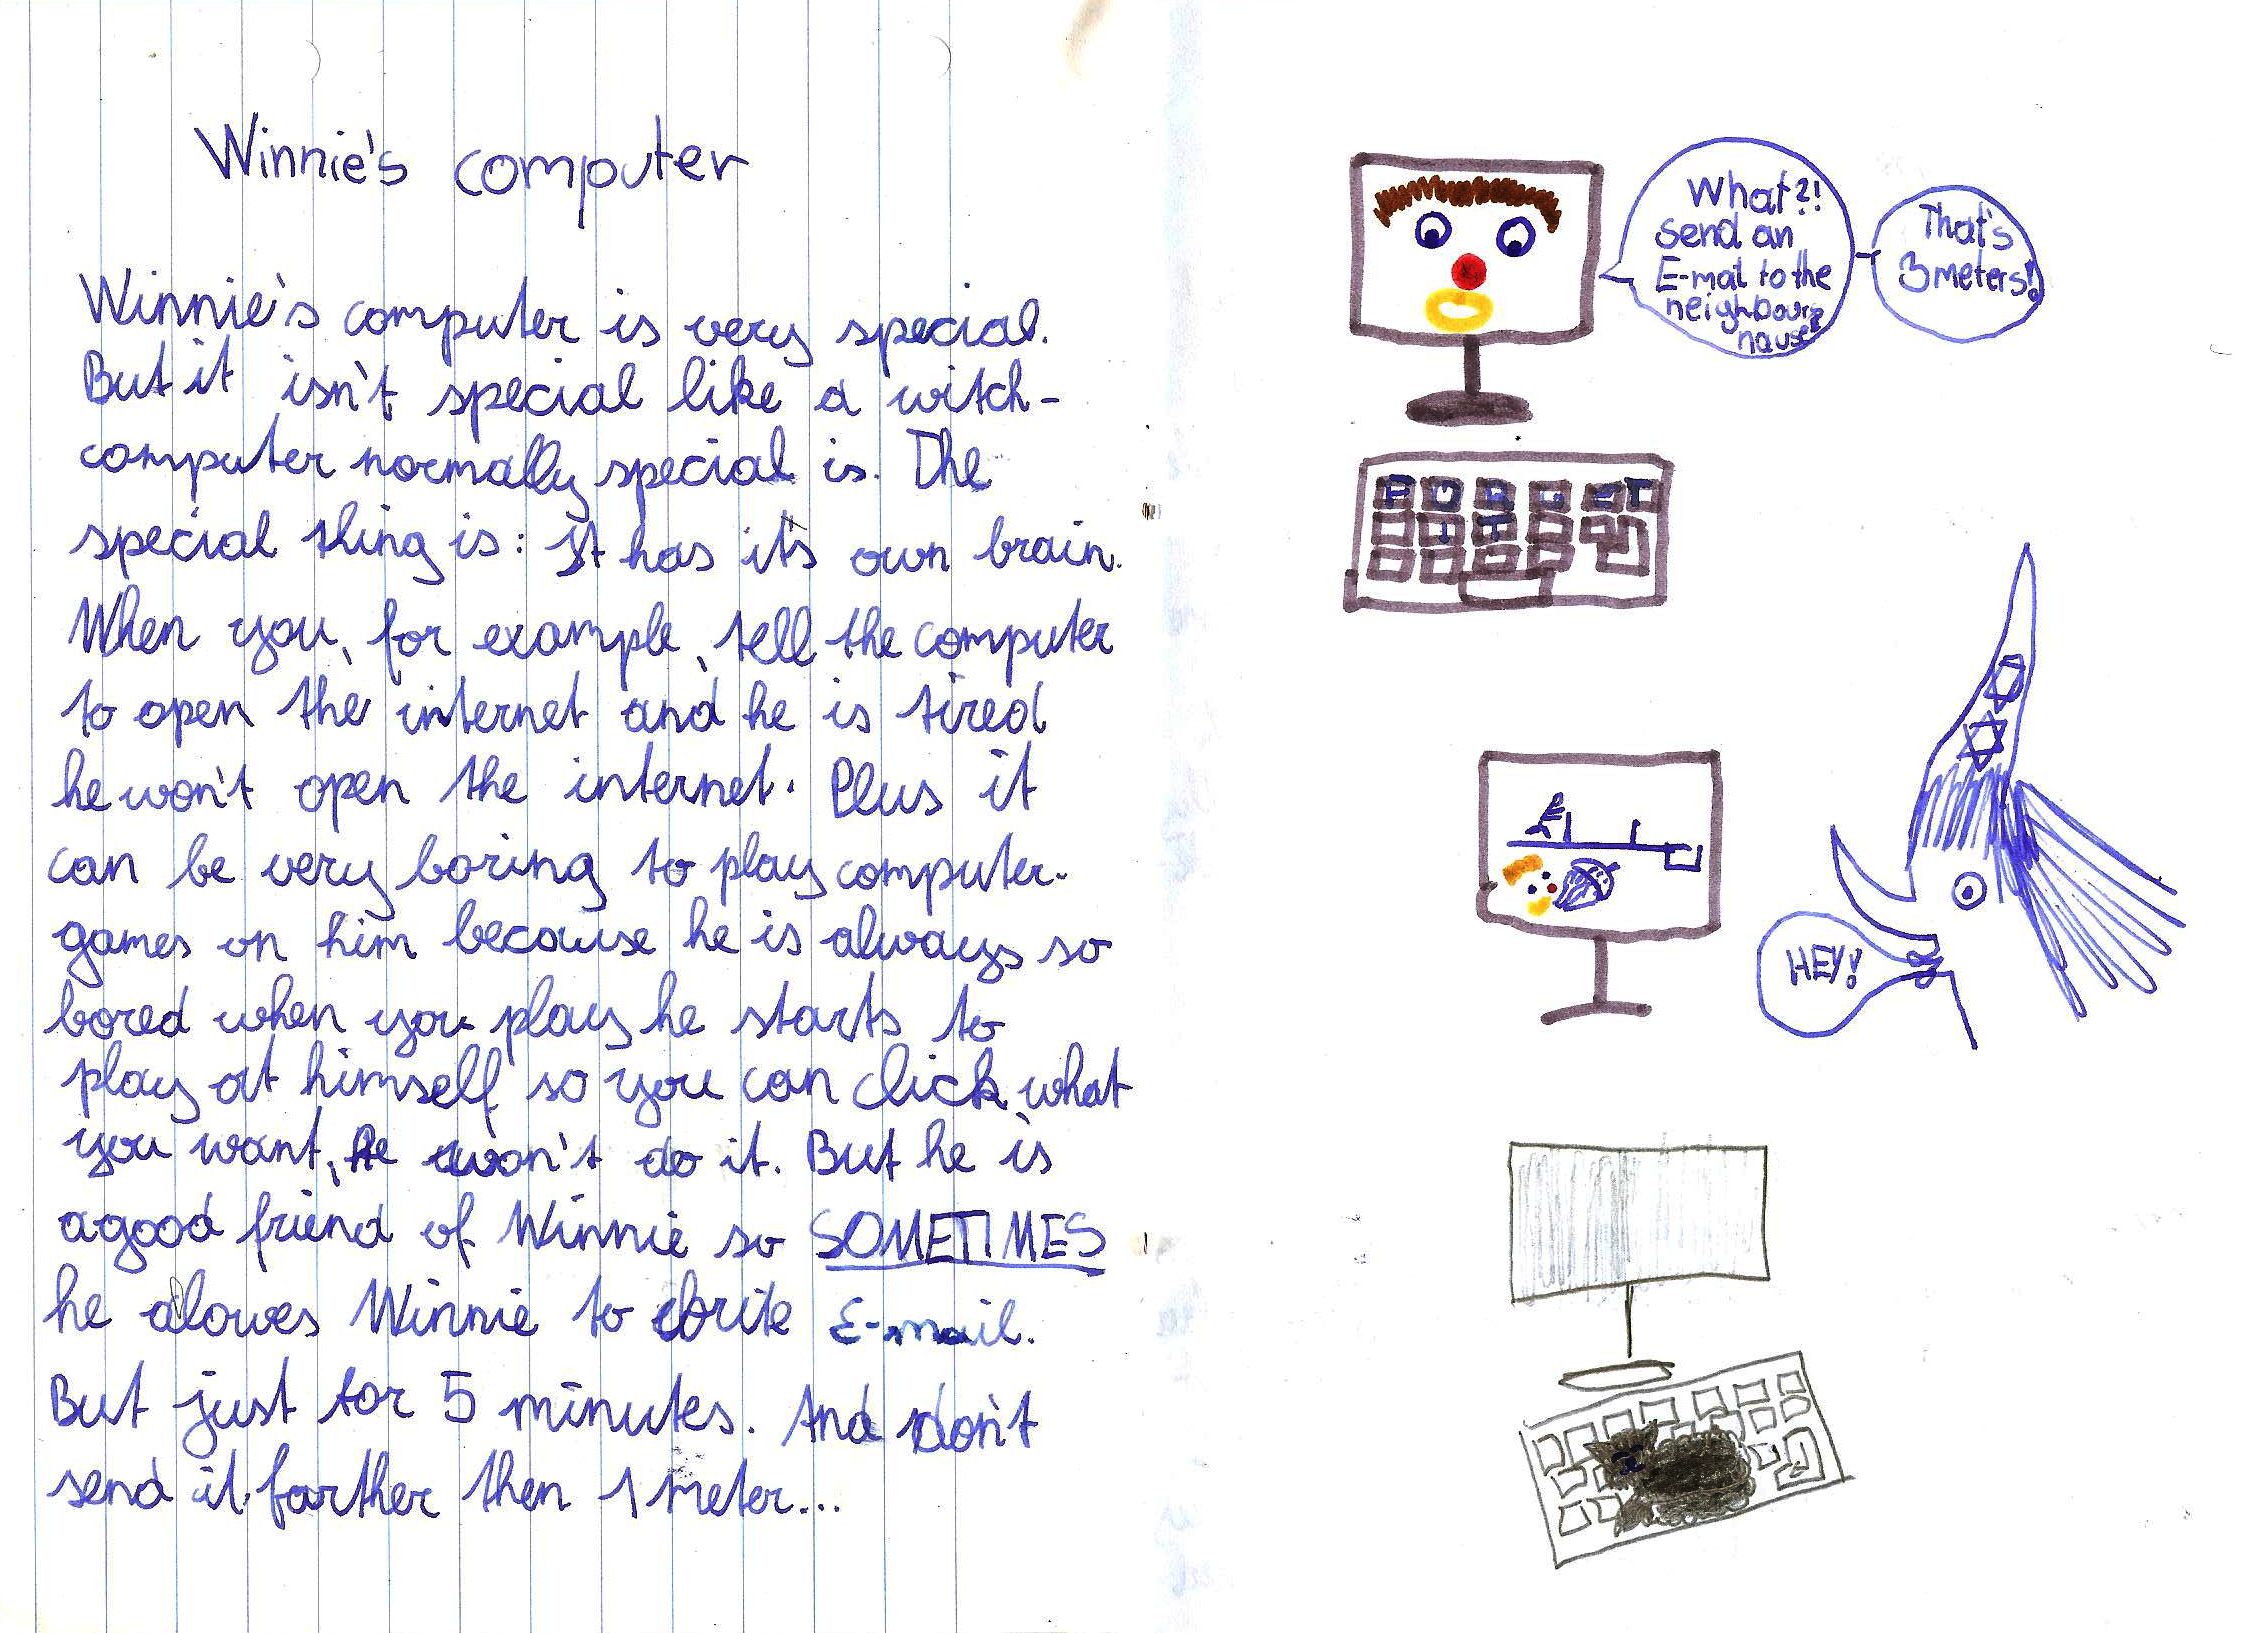 Winnie's computer
Winnie's computer is very special.
But it isn't special like a witch-
computer normally special is. The
special thing is: It has it's own brain.
When you, for example, tell the computer
to open the internet and he is tired
he won't open the internet. Plus it
can be very boring to play computer-
games on him because he is always so
bored when you play he starts to
play at himself so you can click what
you want, he won't do it. But he is
a good friend of Winnie so SOMETIMES
he alowes Winnie to write E-mail.
But just for 5 minutes. And don't
send it farther then 1 meter...
What?!
send an
E-mail to the
neighbours
hause?
That's
3 meters!
HEY!